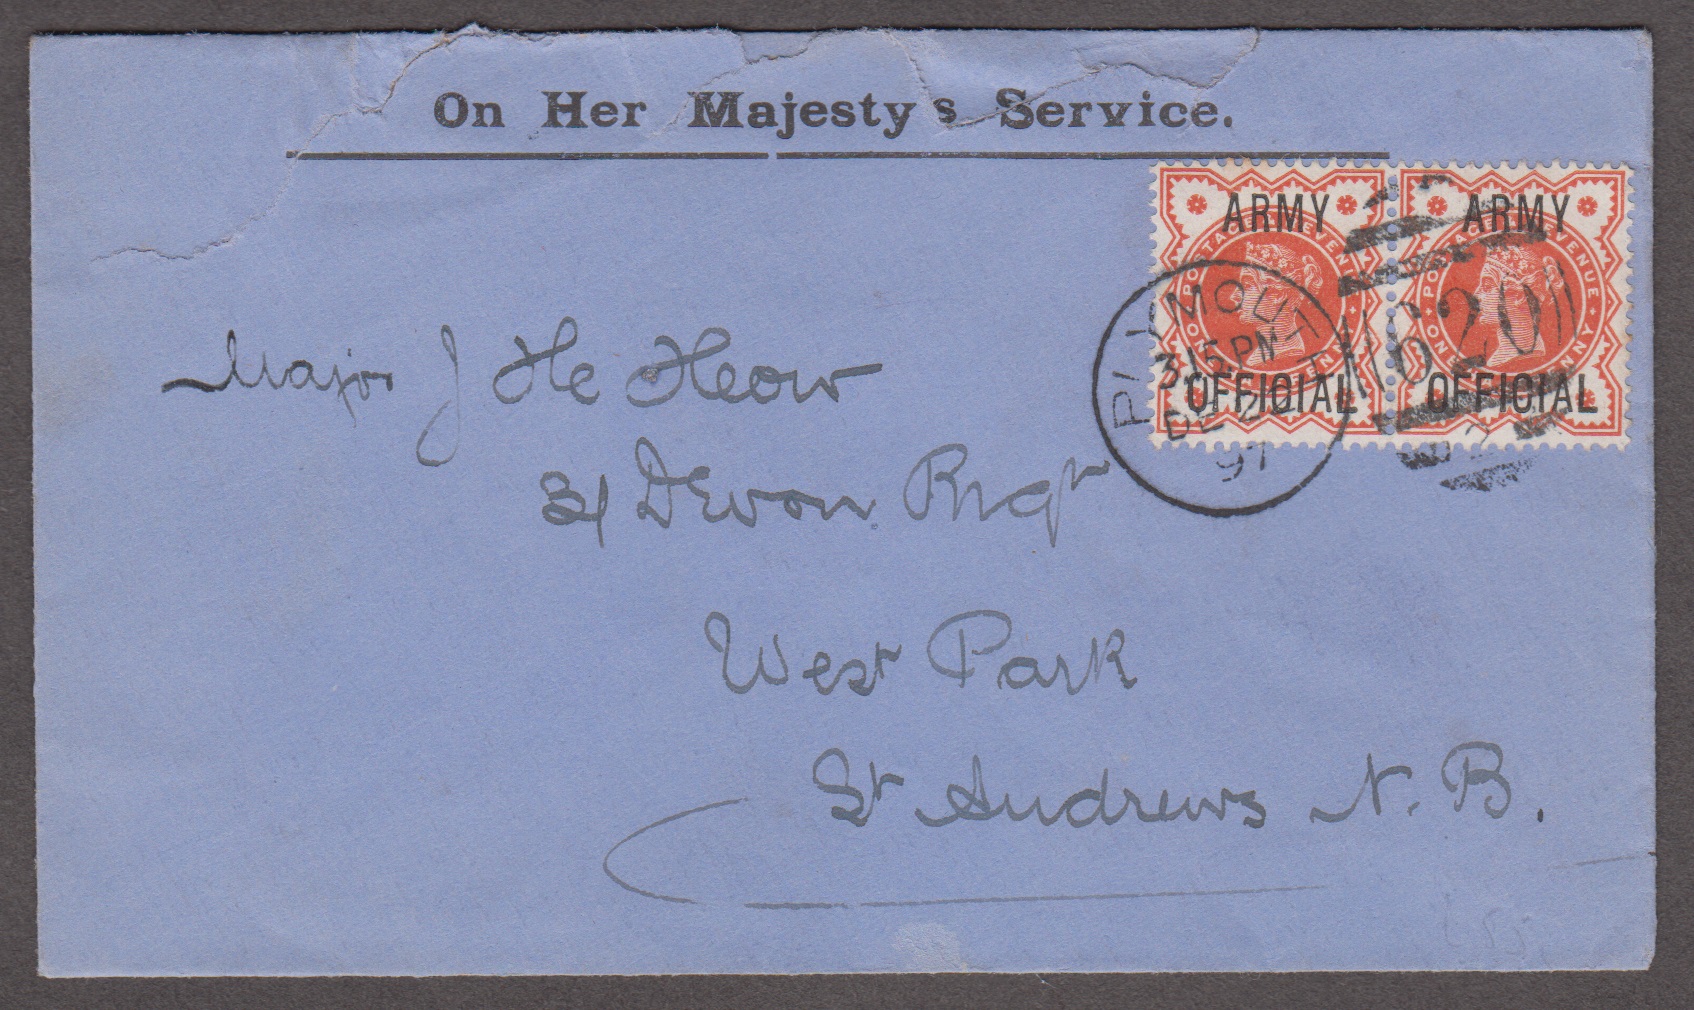 On Her Majesty's Service.
ARMY OFFICIAL
POSTAGE REVENUE
ONE PENNY
ARMY OFFICIAL
POSTAGE REVENUE
ONE PENNY
PLYMOUTH
3 15 PM
DE 20
97
620
Major J
Devon Regt
West Park
St Andrews N.B.